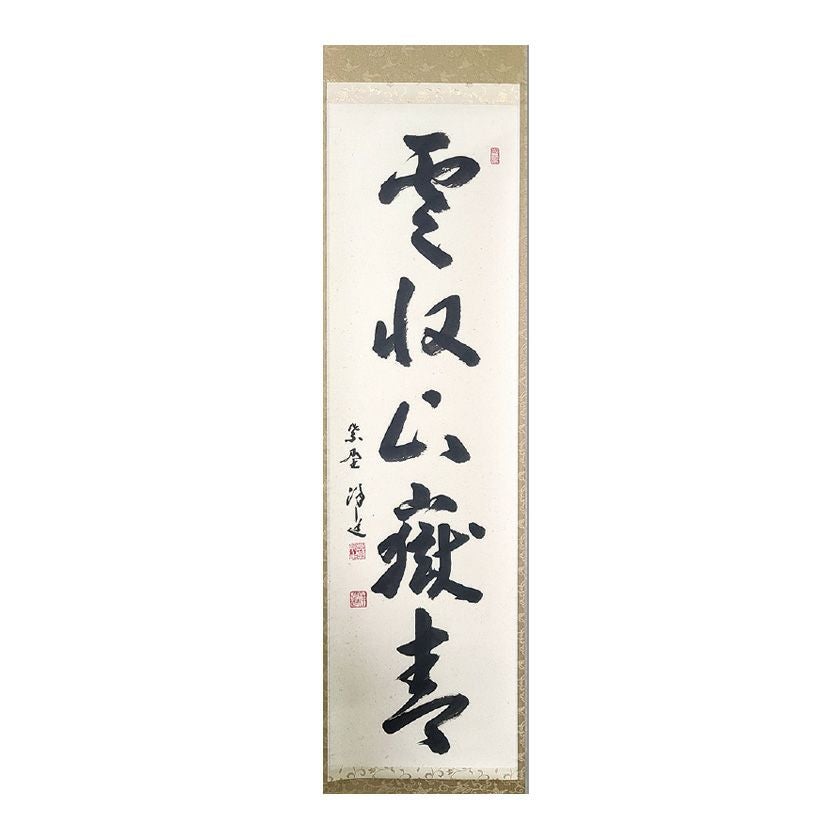 雲収山嶽青
紫野